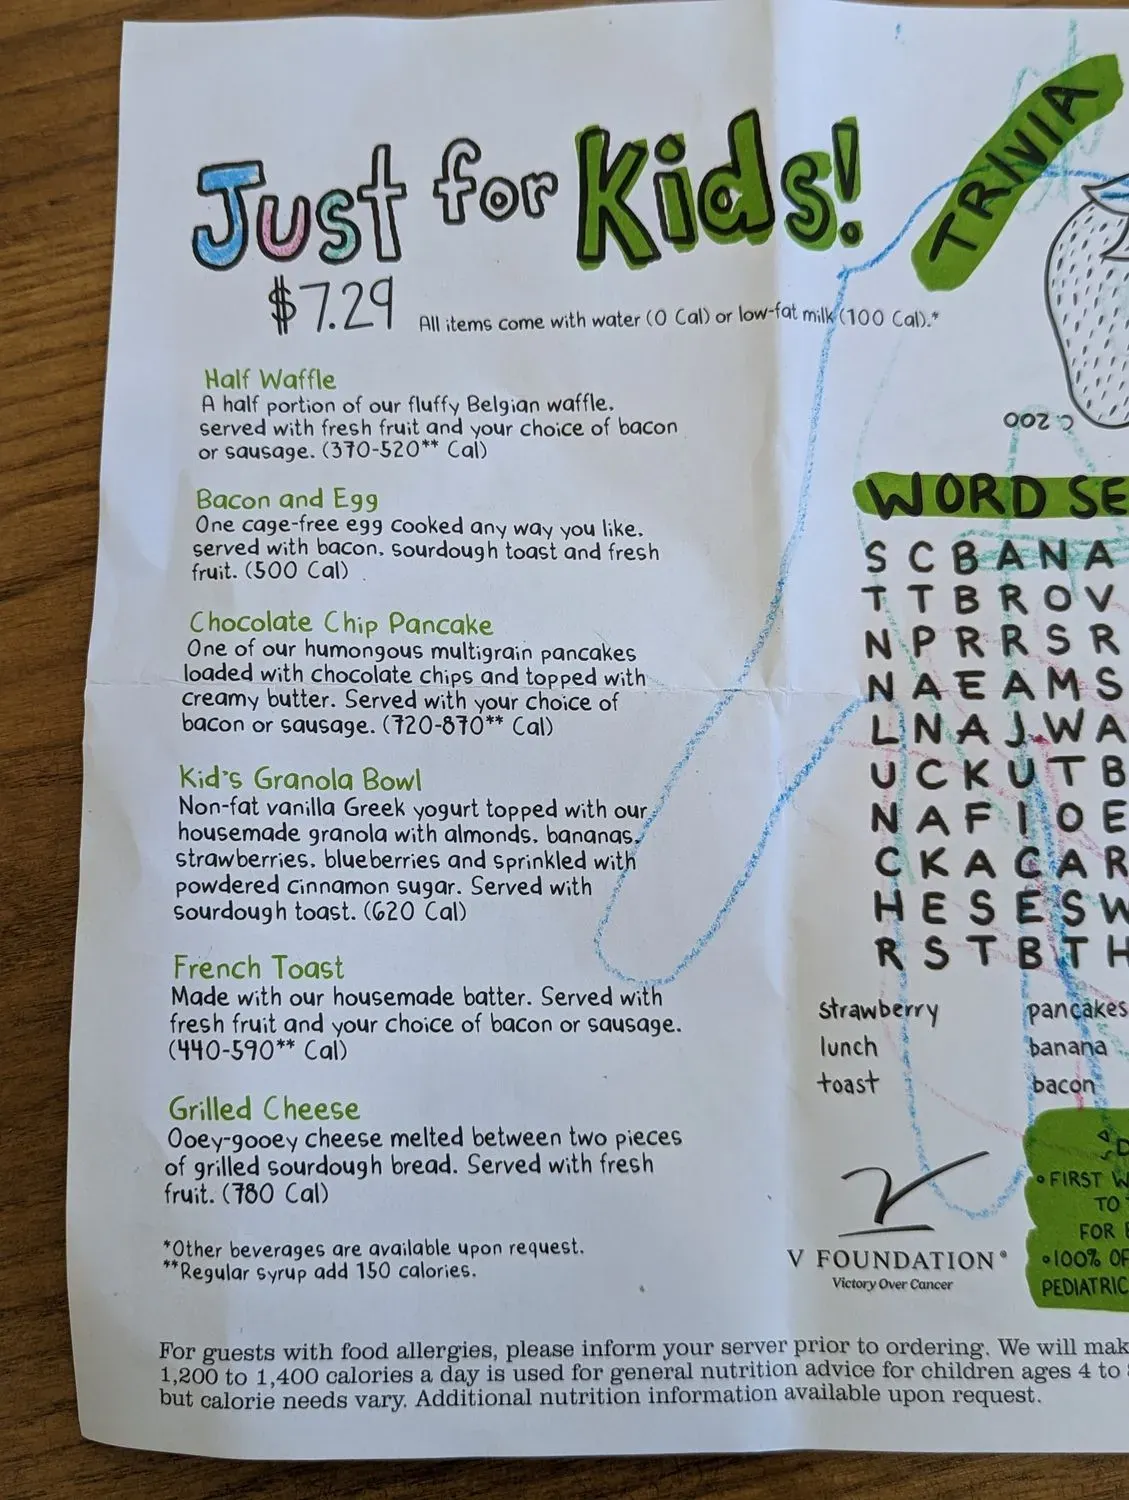 Just for Kids!
$7.29
All items come with water (0 Cal) or low-fat milk (100 Cal).*
Half Waffle
A half portion of our fluffy Belgian waffle,
served with fresh fruit and your choice of bacon
or sausage. (370-520** Cal)
Bacon and Egg
One cage-free egg cooked any way you like,
served with bacon, sourdough toast and fresh
fruit. (500 Cal)
Chocolate Chip Pancake
One of our humongous multigrain pancakes
loaded with chocolate chips and topped with
creamy butter. Served with your choice of
bacon or sausage. (720-870** Cal)
Kid's Granola Bowl
Non-fat vanilla Greek yogurt topped with our
housemade granola with almonds, bananas,
strawberries, blueberries and sprinkled with
powdered cinnamon sugar. Served with
sourdough toast. (620 Cal)
French Toast
Made with our housemade batter. Served with
fresh fruit and your choice of bacon or sausage.
(440-590** Cal)
Grilled Cheese
Ooey-gooey cheese melted between two pieces
of grilled sourdough bread. Served with fresh
fruit. (780 Cal)
*Other beverages are available upon request.
**Regular syrup add 150 calories.
TRIVIA
C. 200
WORD SE
S C B A N A
T T B R O V
N P R R S R
N A E A M S
L N A J W A
U C K U T B
N A F I O E
C K A C A R
H E S E S W
R S T B T H
strawberry pancakes
lunch banana
toast bacon
V FOUNDATION®
Victory Over Cancer
• FIRST W
TO
FOR
• 100% OF
PEDIATRIC
For guests with food allergies, please inform your server prior to ordering. We will mak
1,200 to 1,400 calories a day is used for general nutrition advice for children ages 4 to
but calorie needs vary. Additional nutrition information available upon request.